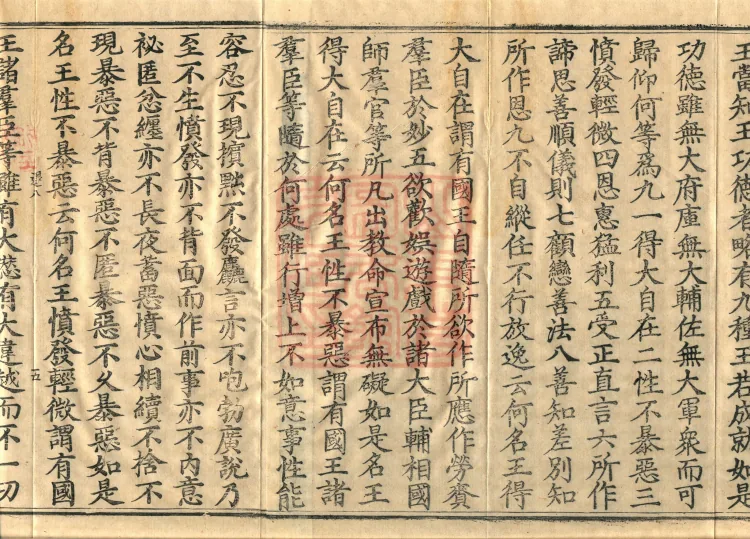 王當知王功德者略有九種王若成就如是
功德雖無大府庫無大輔佐無大軍衆而可
歸仰何等爲九一得大自在二性不暴惡三
憤發輕微四恩惠猛利五受正直言六所作
諦思善順儀則七顧戀善法八善知差別知
所作恩九不自縱任不行放逸云何名王得
大自在謂有國王自隨所欲作所應作勞賚
羣臣於妙五欲歡娛遊戲於諸大臣輔相國
師羣官等所凡出教命宣布無礙如是名王
得大自在云何名王性不暴惡謂有國王諸
羣臣等隨於何處雖行增上不如意事性能
容忍不現擯黜不發麤言亦不咆勃廣說乃
至不生憤發亦不背面而作前事亦不內意
祕匿忿纏亦不長夜蓄惡憤心相續不捨不
現暴惡不背暴惡不匿暴惡不久暴惡如是
名王性不暴惡云何名王憤發輕微謂有國
五
王諸羣臣等雖有大愆有大違越而不一切